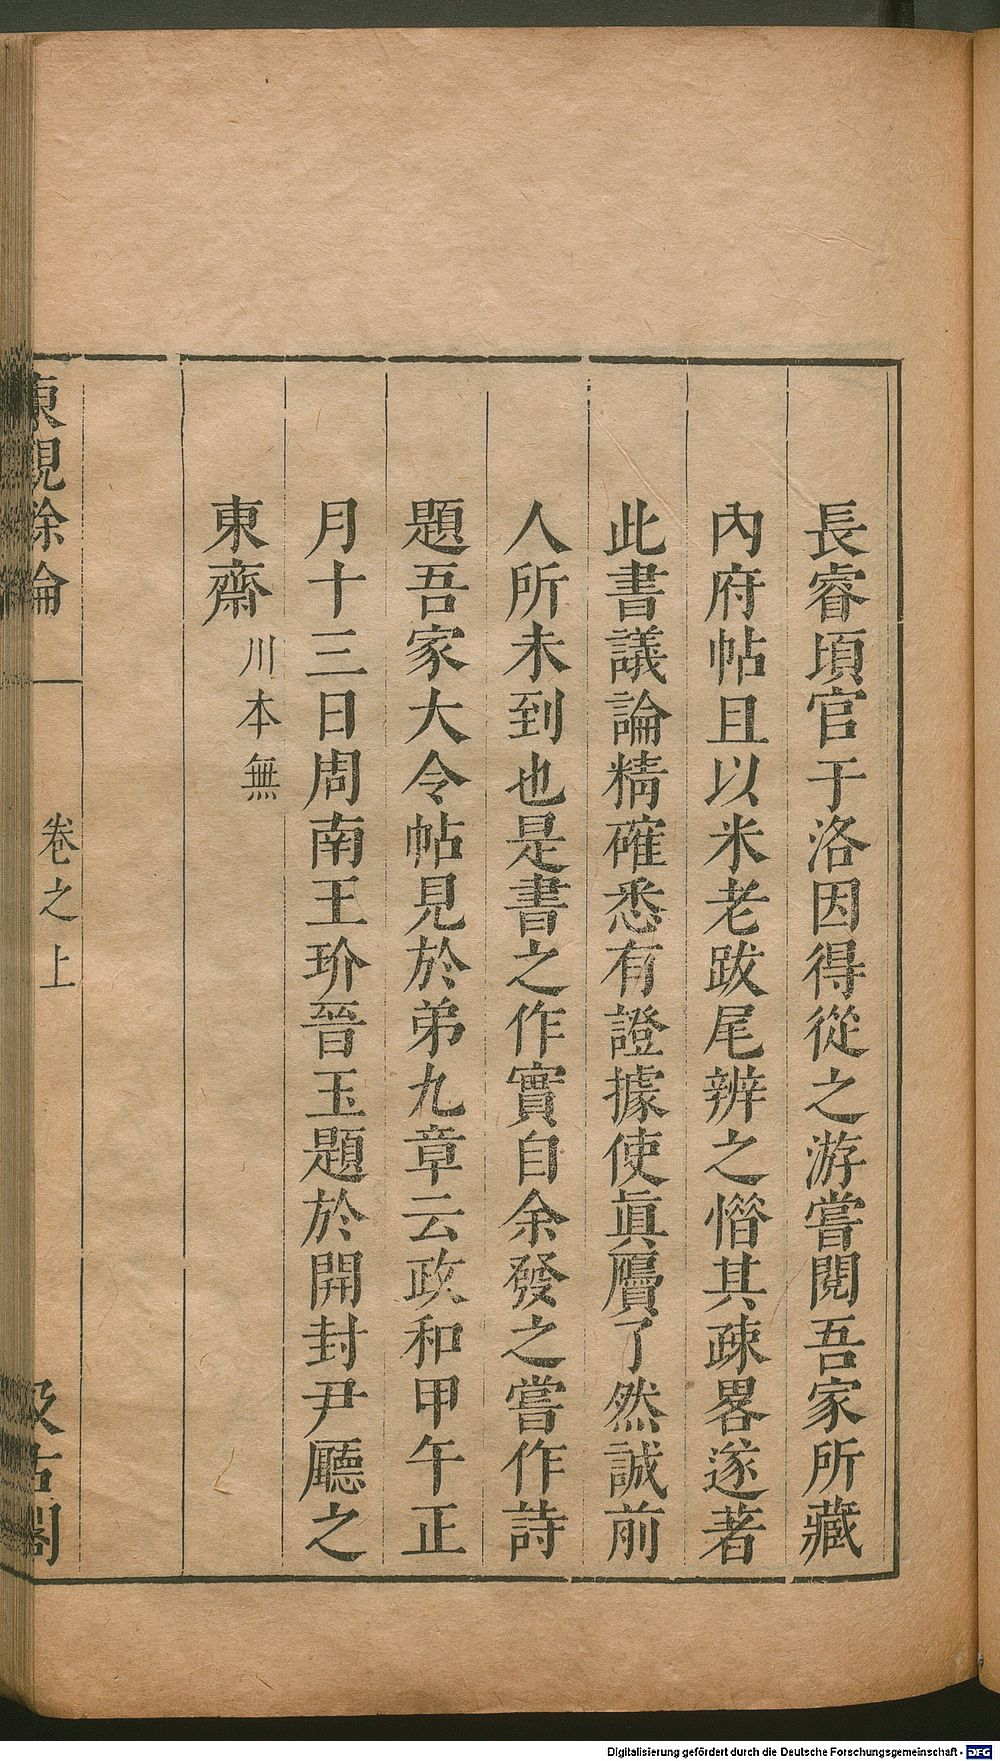 長睿頃官于洛因得從之游嘗閱吾家所藏
內府帖且以米老跋尾辨之憯其疎畧遂著
此書議論精確悉有證據使眞贗了然誠前
人所未到也是書之作實自余發之嘗作詩
題吾家大令帖見於弟九章云政和甲午正
月十三日周南王玠晉玉題於開封尹廳之
東齋
川本無
東觀餘論
卷之上
汲古閣
Digitalisierung gefördert durch die Deutsche Forschungsgemeinschaft - DFG